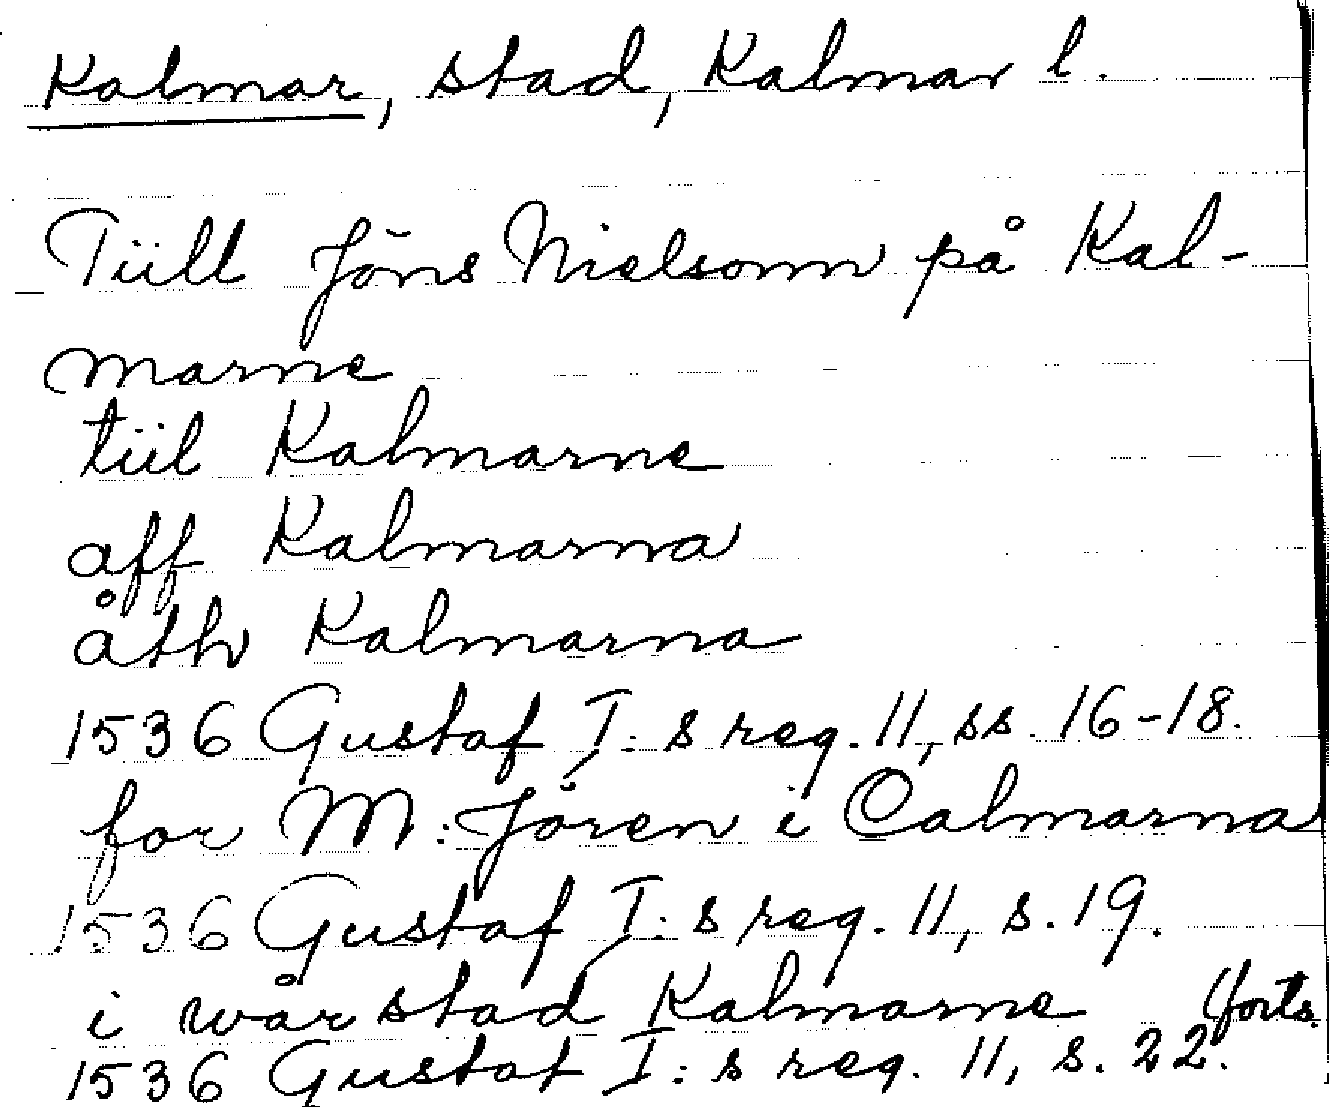 Kalmar, stad, Kalmar l.
Tiill Jöns Nielsonn på Kal-
marne
tiil Kalmarne
aff Kalmarna
åth Kalmarna
1536 Gustaf I: s reg. 11, ss. 16-18.
for M: Jören i Calmarna
1536 Gustaf I: s reg. 11, s. 19.
i wår stad Kalmarne (forts.
1536 Gustaf I: s reg. 11, s. 22.